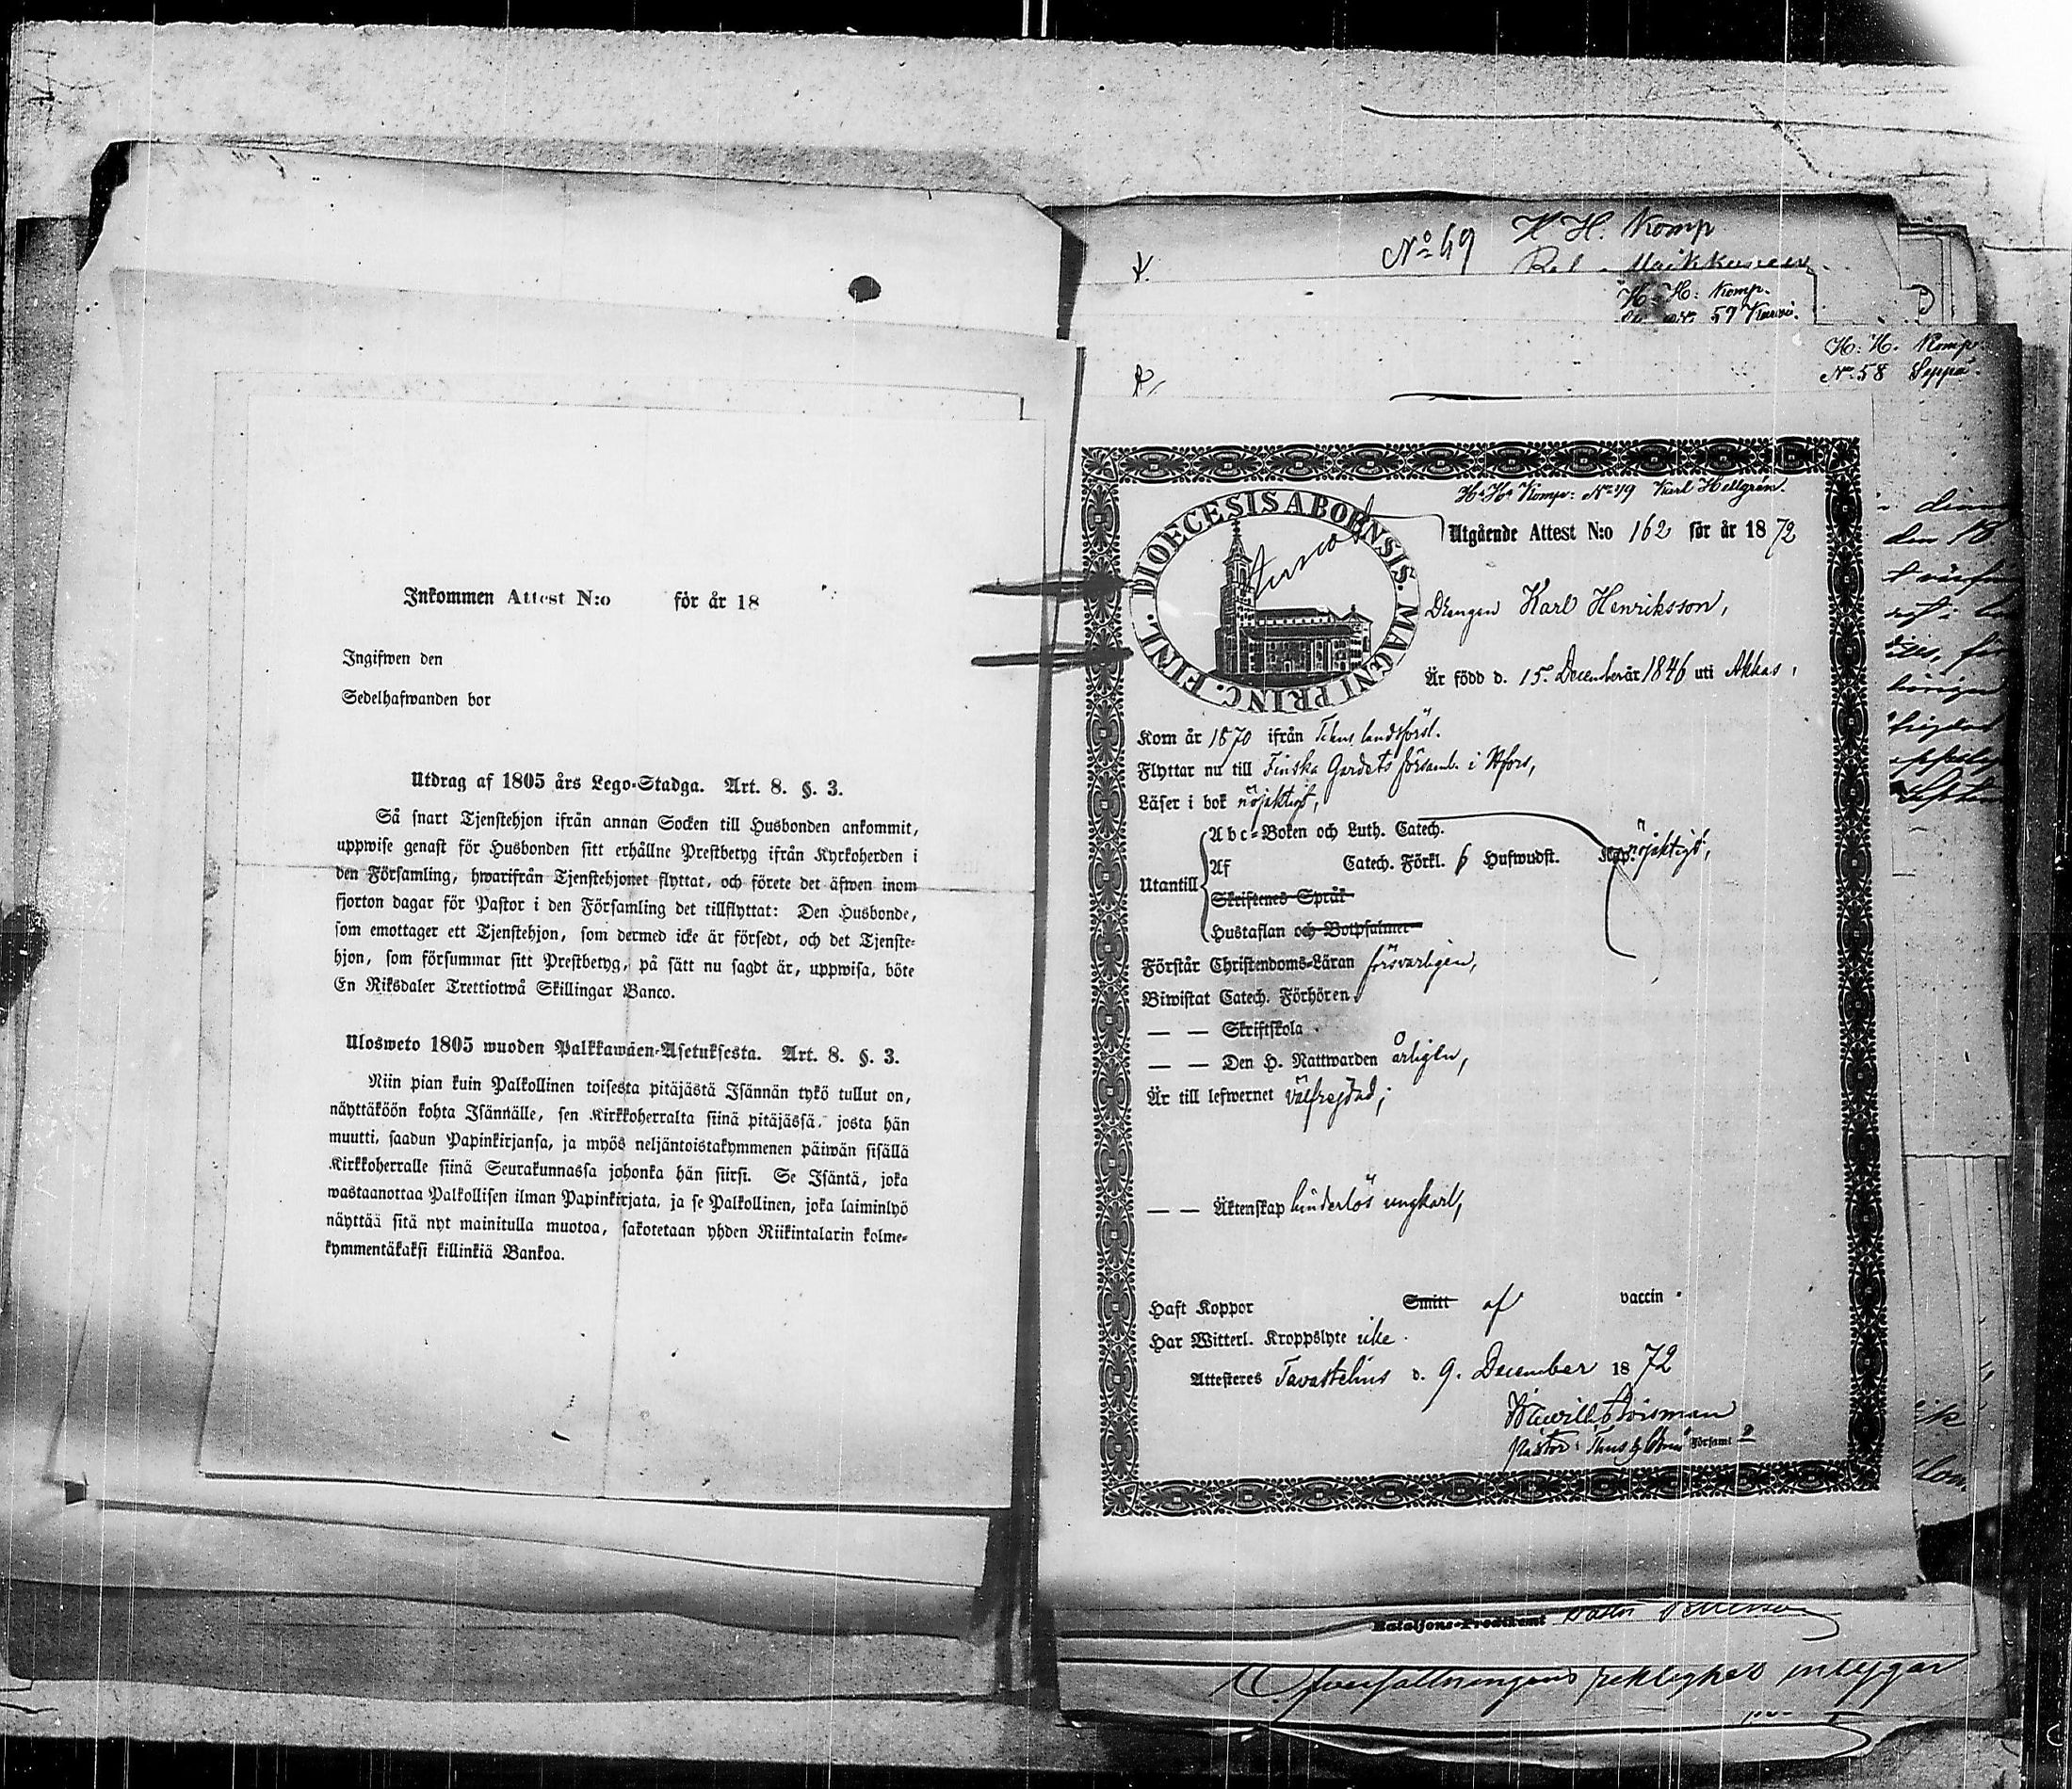 Inkommen Attest N:o för år 18
Ingifwen den
Sedelhafwanden bor
Utdrag af 1805 års Lego-Stadga. Art. 8. §. 3.
Så snart Tjenstehjon ifrån annan Socken till Husbonden ankommit,
uppwise genast för Husbonden sitt erhållne Prestbetyg ifrån Kyrkoherden i
den Församling, hwarifrån Tjenstehjonet flyttat, och förete det äfwen inom
fjorton dagar för Pastor i den Församling det tillflyttat: Den Husbonde,
som emottager ett Tjenstehjon, som dermed icke är försedt, och det Tjenste-
hjon, som försummar sitt Prestbetyg, på sätt nu sagdt är, uppwisa, böte
En Riksdaler Trettiotwå Skillingar Banco.
Ulosweto 1805 wuoden Palkkawäen-Asetuksesta. Art. 8. §. 3.
Niin pian kuin Palkollinen toisesta pitäjästä Isännän tykö tullut on,
näyttäköön kohta Isännälle, sen Kirkkoherralta siinä pitäjässä, josta hän
muutti, saadun Papinkirjansa, ja myös neljäntoistakymmenen päiwän sisällä
Kirkkoherralle siinä Seurakunnassa johonka hän siirsi. Se Isäntä, joka
wastaanottaa Palkollisen ilman Papinkirjata, ja se Palkollinen, joka laiminlyö
näyttää sitä nyt mainitulla muotoa, sakotetaan yhden Riikintalarin kolme-
kymmentäkaksi killinkiä Bankoa.
No 49 H. H. Komp
H: H: Komp.
59
H: H. Komp.
No 58 Seppä.
H: H: Komp: No 49 Karl Hellgrén.
DIOECESIS ABOENSIS. MAGNI PRINC. FINL.
Utgående Attest N:o 162 för år 1872
Drengen Karl Henriksson,
Är född d. 15. December år 1846 uti Akkas,
Kom år 1870 ifrån Tehus landsförsl.
Flyttar nu till Finska Gardets församl. i Hfors,
Läser i bok nöjaktigt,
Abc-Boken och Luth. Catech.
Utantill Af Catech. Förkl. 6 Hufwudst. nöjaktigt,
Skriftenes Språk
Hustaflan och Botpsalmer
Förstår Christendoms-Läran försvarligen,
Biwistat Catech. Förhören
— — Skriftskola
— — Den H. Nattwarden årligen,
Är till lefwernet välfrejdad;
— — Äktenskap hinderlös ungkarl,
Haft Koppor Smitt af vaccin
Har Witterl. Kroppslyte icke.
Attesteres Tavastehus d. 9. December 1872
Pastor
Församl
Bataljons-Predikant